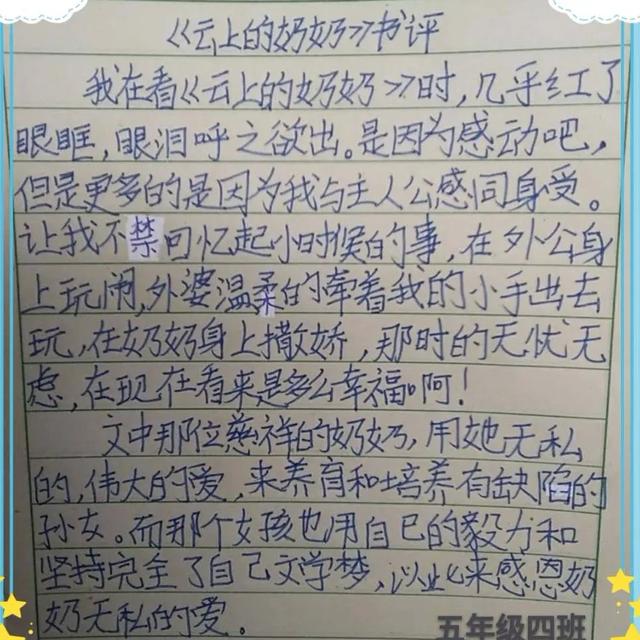 《云上的奶奶》书评
我在看《云上的奶奶》时,几乎红了
眼眶,眼泪呼之欲出。是因为感动吧,
但是更多的是因为我与主人公感同身受。
让我不禁回忆起小时候的事,在外公身
上玩闹,外婆温柔的牵着我的小手出去
玩,在奶奶身上撒娇,那时的无忧无
虑,在现在看来是多么幸福啊!
文中那位慈祥的奶奶,用她无私
的,伟大的爱,来养育和培养有缺陷的
孙女。而那个女孩也用自己的毅力和
坚持完全了自己文学梦,以此来感恩奶
奶无私的爱。
五年级四班